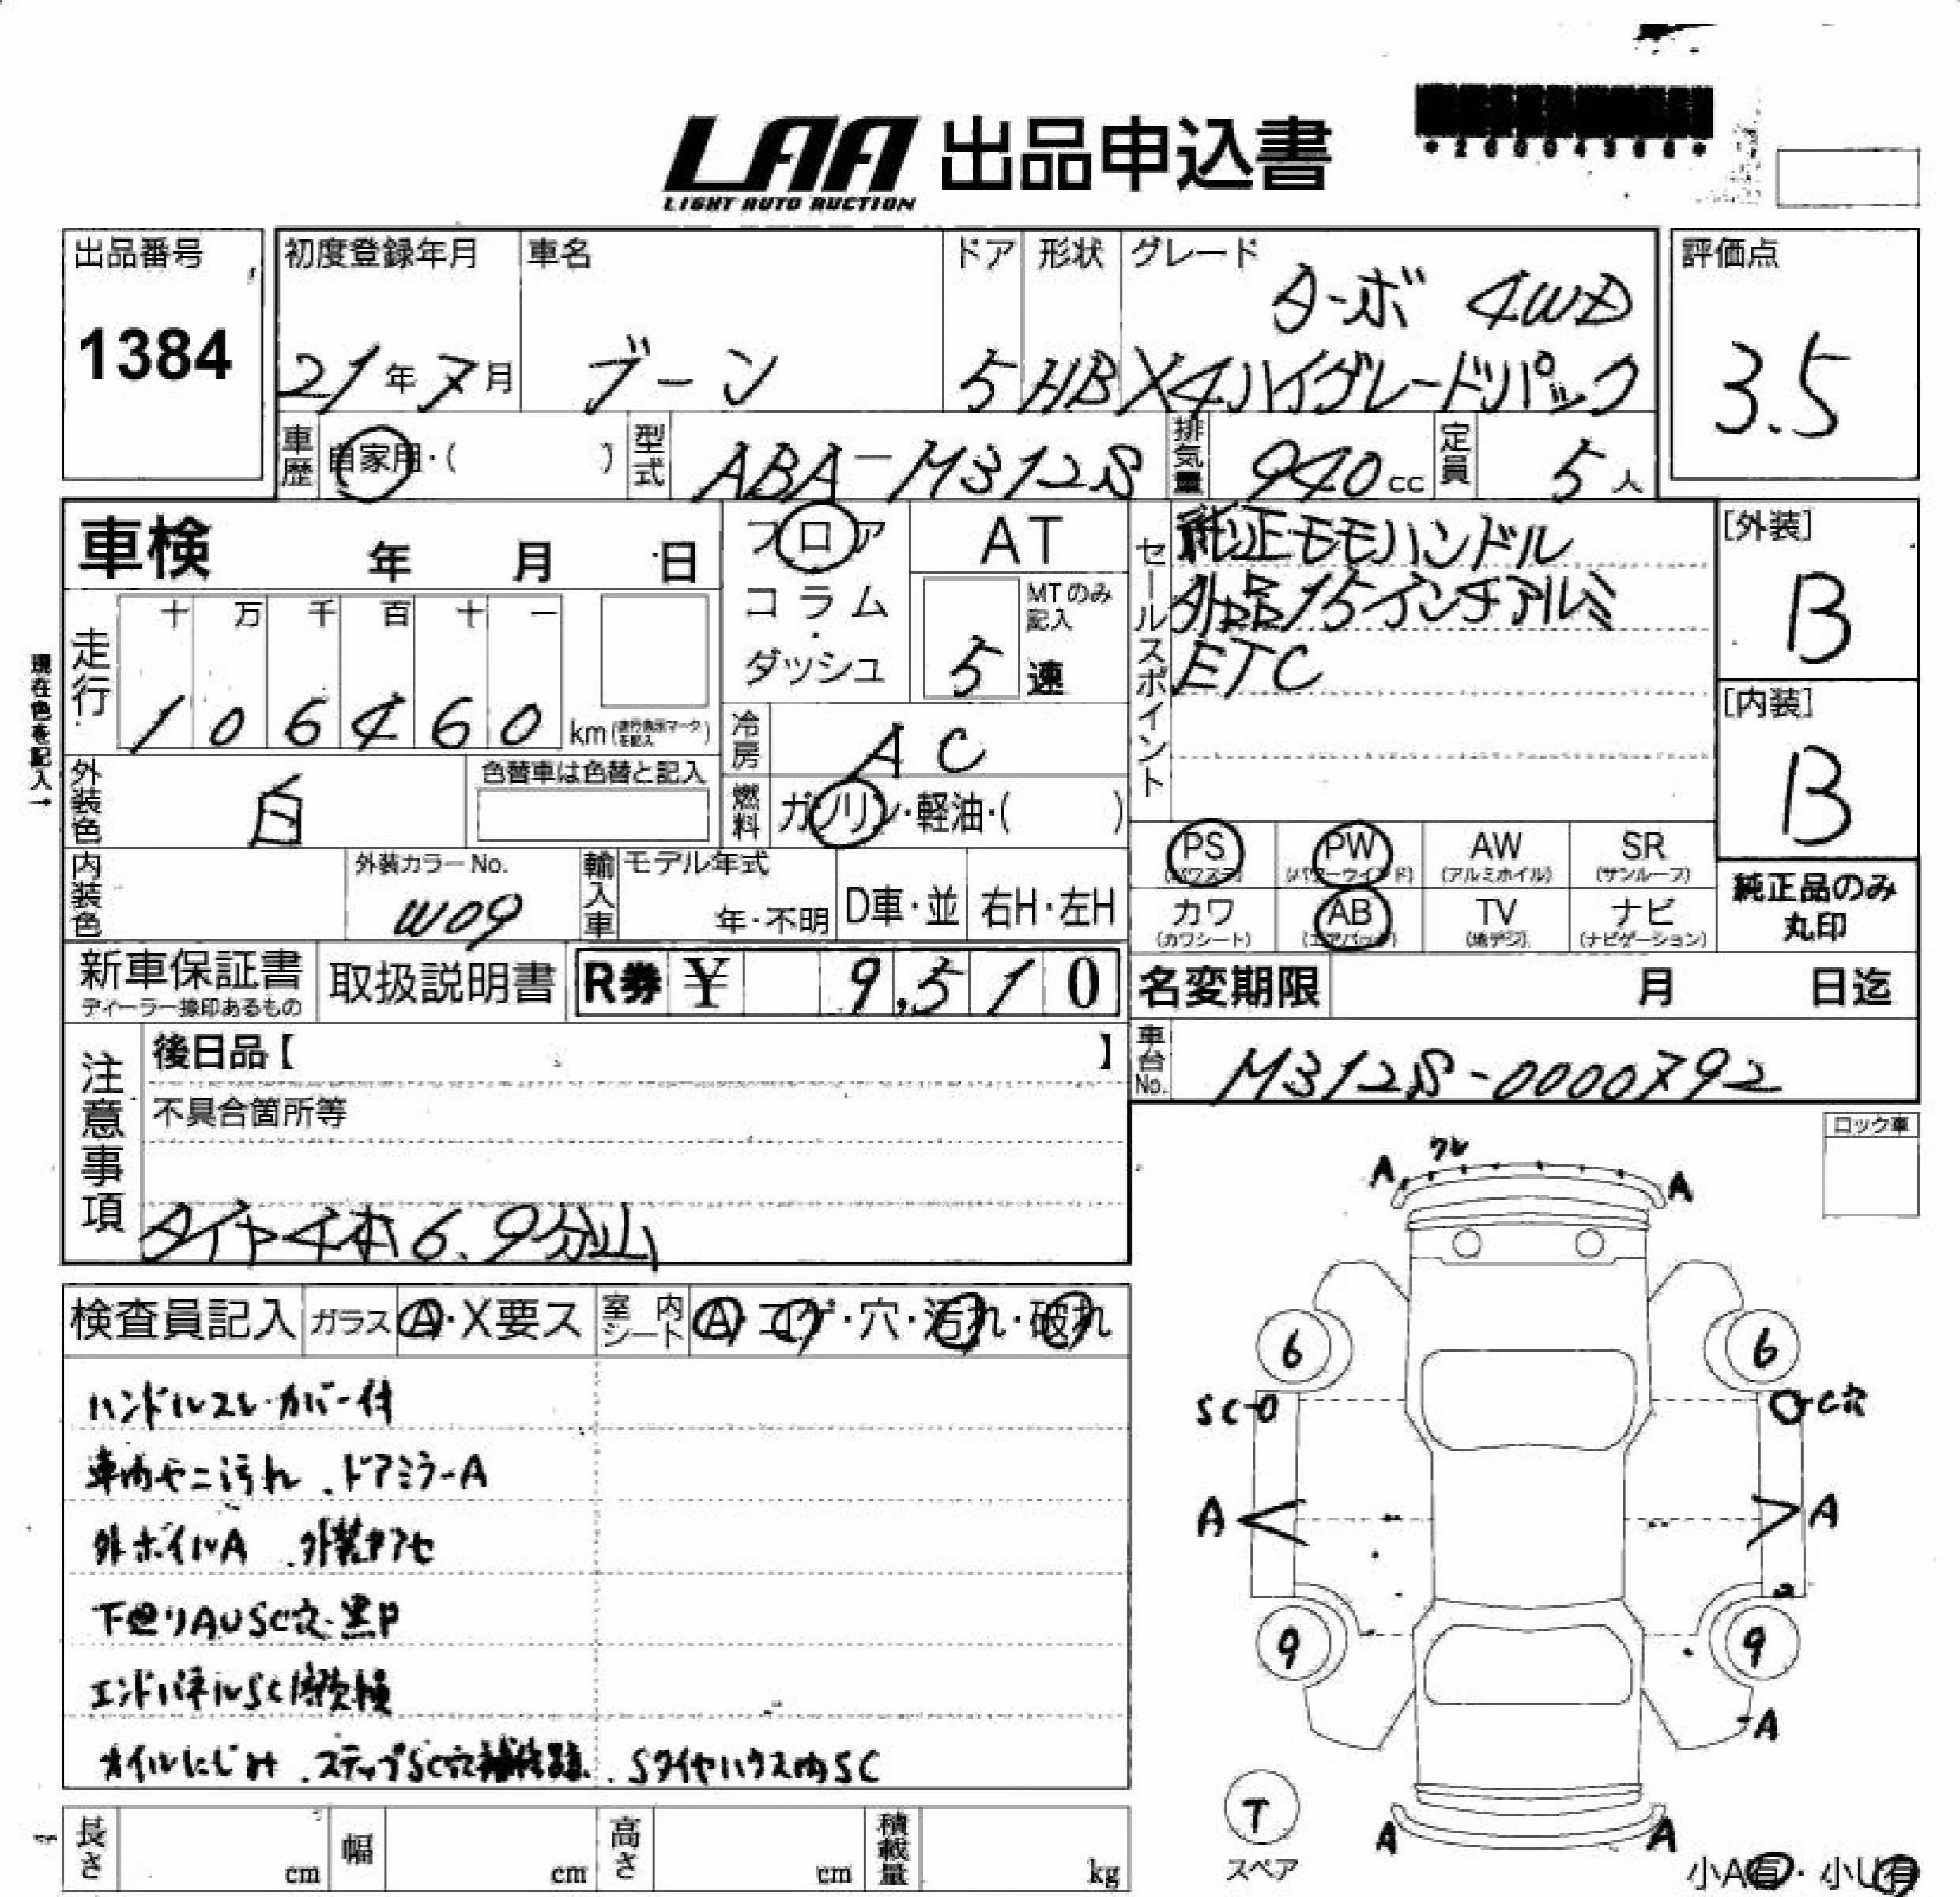 LAA 出品申込書
LIGHT AUTO AUCTION
出品番号
1384
初度登録年月
21年7月
車名
ブーン
ドア
5
形状
HB
グレード
ターボ 4WD
X4ハイグレードパック
評価点
3.5
車歴 自家用・( )
型式 ABA-M312S
排気量 940cc
定員 5人
車検 年 月 日
フロア
コラム
ダッシュ
AT
MTのみ記入
5速
セールスポイント
純正モモハンドル
外品15インチアルミ
ETC
[外装]
B
[内装]
B
現在色を記入→
走行
十 万 千 百 十 一
1 0 6 4 6 0 km(走行表示マークを記入)
冷房 AC
外装色 白
色替車は色替と記入
燃料 ガソリン・軽油・( )
内装色
外装カラーNo.
W09
輸入車
モデル年式
年・不明
D車・並
右H・左H
PS
(パワステ)
PW
(パワーウインド)
AW
(アルミホイル)
SR
(サンルーフ)
カワ
(カワシート)
AB
(エアバック)
TV
(地デジ)
ナビ
(ナビゲーション)
純正品のみ
丸印
新車保証書
ディーラー捺印あるもの
取扱説明書
R券 ¥ 9,510
名変期限 月 日迄
車台No. M312S-0000792
注意事項
後日品【 】
不具合箇所等
タイヤ4本6.9分山
ロック車
検査員記入
ガラス A・X要ス
室内シート A・コゲ・穴・汚れ・破れ
ハンドルスレ・カバー付
車内ヤニ汚れ.ドアミラーA
外ホイルA .外装カフセ
下廻りAUSC穴・黒P
エンドパネルSC
オイルにじみ.ステップSC穴補修跡.Sタイヤハウス内SC
A ワレ A
6 6
SC C穴
A A
9 9
A
T
スペア
A A
小A有・小U有
長さ cm
幅 cm
高さ cm
積載量 kg